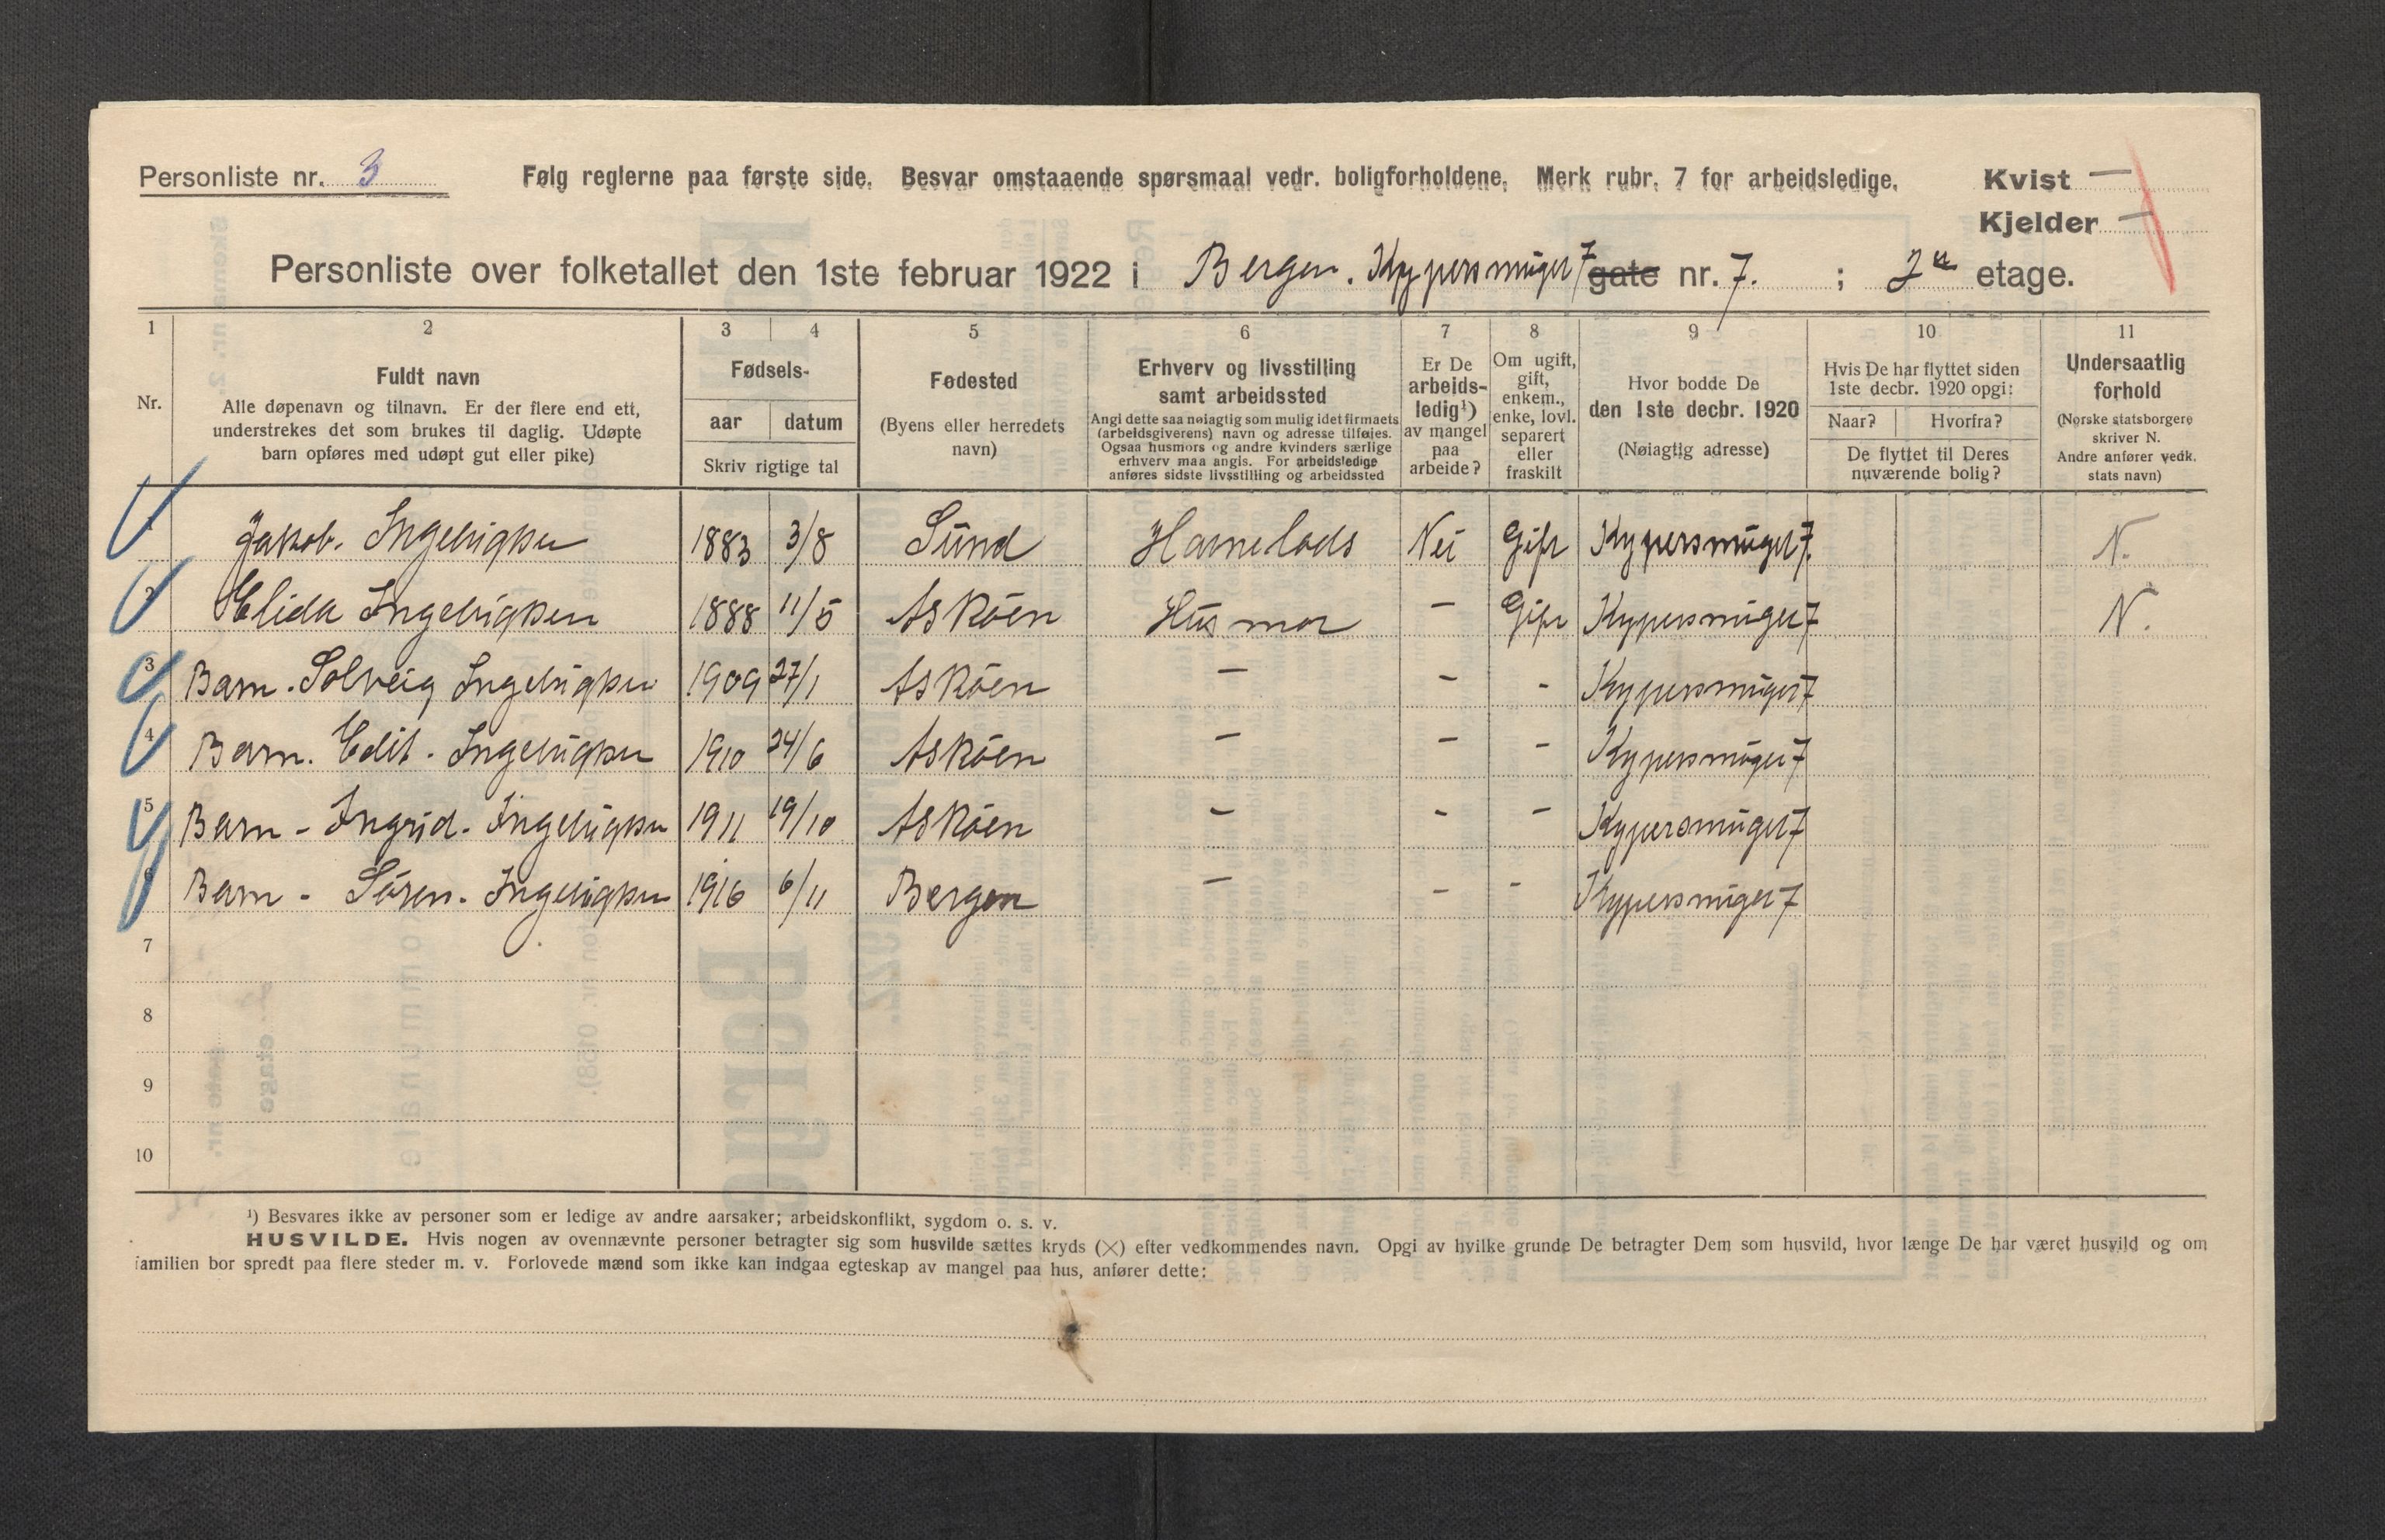 Personliste nr. 3 Følg reglerne paa første side. Besvar omstaaende spørsmaal vedr. boligforholdene. Merk rubr. 7 for arbeidsledige. Kvist —
Kjelder —
Personliste over folketallet den 1ste februar 1922 i Bergen. Kypersmuget 7 gate nr. 7. ; etage.
1 2 3 4 5 6 7 8 9 10 11
Nr.
Fuldt navn
Alle døpenavn og tilnavn. Er der flere end ett,
understrekes det som brukes til daglig. Udøpte
barn opføres med udøpt gut eller pike)
Fødsels-
aar datum
Skriv rigtige tal
Fødested
(Byens eller herredets
navn)
Erhverv og livsstilling
samt arbeidssted
Angi dette saa nøiagtig som mulig idet firmaets
(arbeidsgiverens) navn og adresse tilføies.
Ogsaa husmors og andre kvinders særlige
erhverv maa angis. For arbeidsledige
anføres sidste livsstilling og arbeidssted
Er De
arbeids-
ledig¹)
av mangel
paa
arbeide?
Om ugift,
gift,
enkem.,
enke, lovl.
separert
eller
fraskilt
Hvor bodde De
den 1ste decbr. 1920
(Nøiagtig adresse)
Hvis De har flyttet siden
1ste decbr. 1920 opgi:
Naar? Hvorfra?
De flyttet til Deres
nuværende bolig?
Undersaatlig
forhold
(Norske statsborgere
skriver N.
Andre anfører vedk.
stats navn)
1 Jakob. Ingebrigtsen 1883 3/8 Sund Havnelods Nei Gift Kypersmuget 7. N.
2 Elida Ingebrigtsen 1888 11/5 Askøen Husmor — Gift Kypersmuget 7 N.
3 Barn. Solveig Ingebrigtsen 1909 27/1 Askøen — — - Kypersmuget 7
4 Barn. Edit. Ingebrigtsen 1910 24/6 Askøen — — - Kypersmuget 7
5 Barn - Ingrid. Ingebrigtsen 1911 19/10 Askøen — - — Kypersmuget 7
6 Barn - Sören. Ingebrigtsen 1916 6/11 Bergen — - - Kypersmuget 7
7
8
9
10
¹) Besvares ikke av personer som er ledige av andre aarsaker; arbeidskonflikt, sygdom o. s. v.
HUSVILDE. Hvis nogen av ovennævnte personer betragter sig som husvilde sættes kryds (×) efter vedkommendes navn. Opgi av hvilke grunde De betragter Dem som husvild, hvor længe De har været husvild og om
familien bor spredt paa flere steder m. v. Forlovede mænd som ikke kan indgaa egteskap av mangel paa hus, anfører dette: